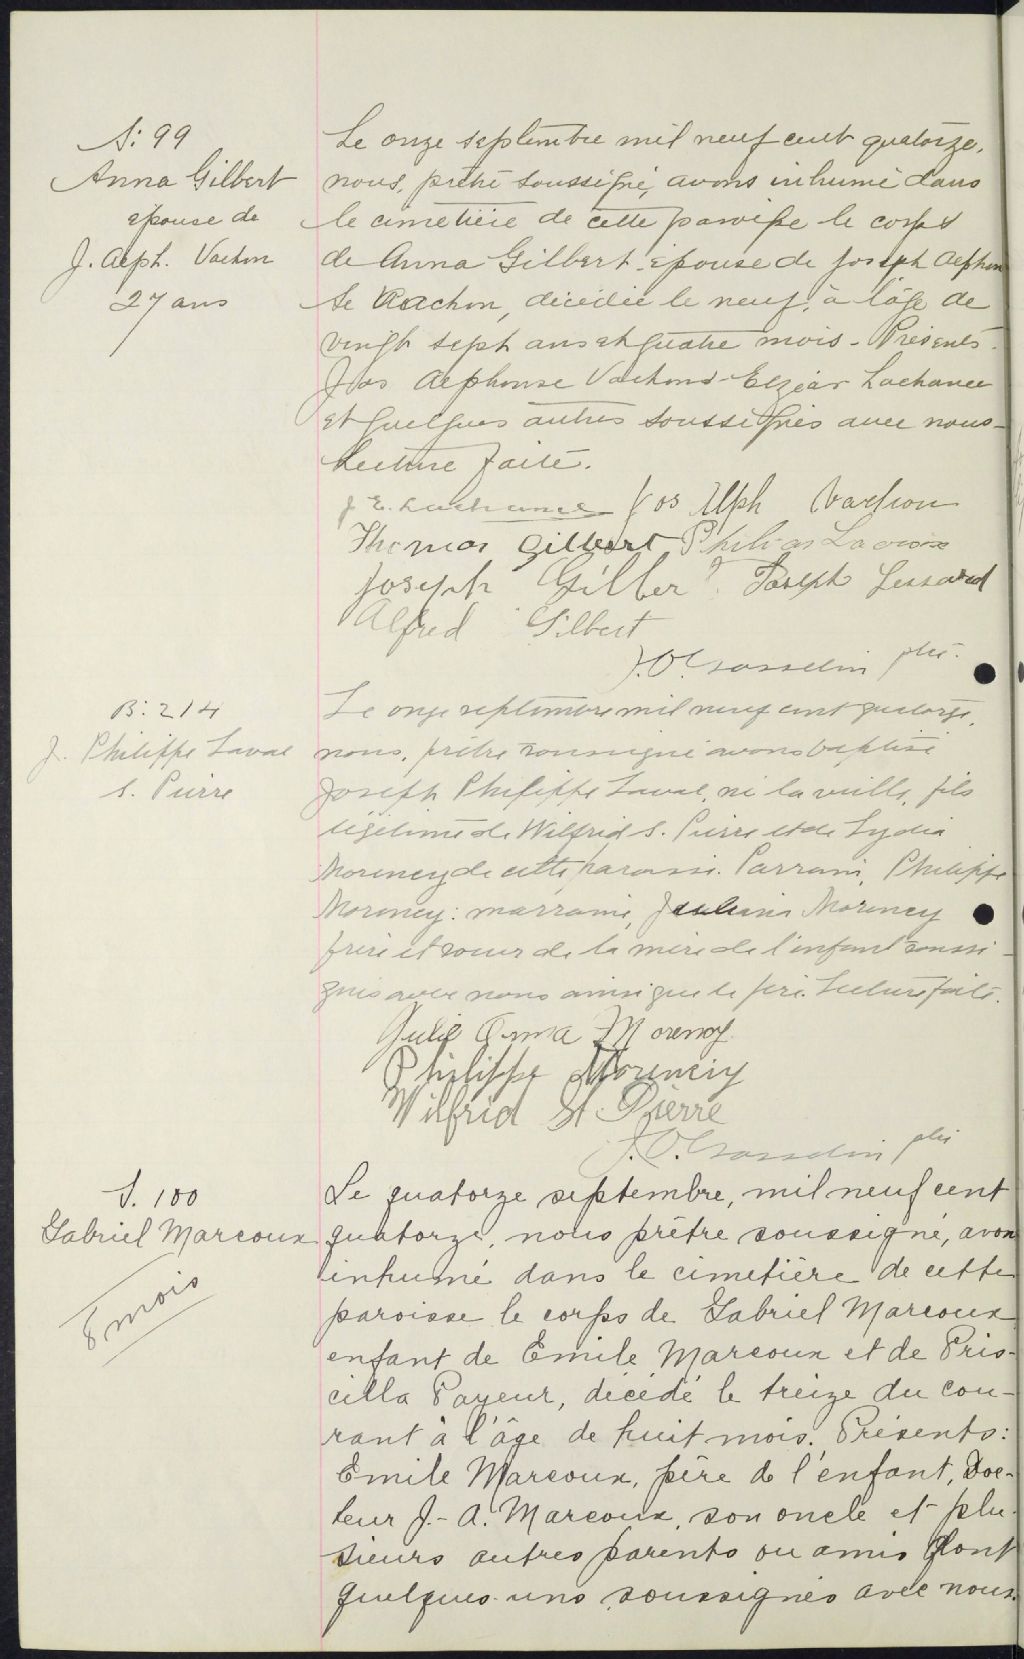 S: 99
Anna Gilbert
épouse de
J. Alph. Vachon
27 ans
Le onze septembre mil neuf cent quatorze,
nous, prêtre soussigné, avons inhumé dans
le cimetière de cette paroisse le corps
de Anna Gilbert épouse de Joseph Alphon
se Vachon, décédée le neuf, à l'âge de
vingt sept ans et quatre mois - Présents -
Jos Alphonse Vachon - Elzéar Lachance
et quelques autres soussignés avec nous -
Lecture faite.
J. E. Lachance Jos Alph Vachon
Thomas Gilbert Philias Lacroix
Joseph Gilber Joseph Lessard
Alfred Gilbert
J. O. Gosselin ptre.
B: 214
J. Philippe Laval
S. Pierre
Le onze septembre mil neuf cent quatorze,
nous, prêtre soussigné avons baptisé
Joseph Philippe Laval, né la veille, fils
légitime de Wilfrid S. Pierre et de Lydia
Morency de cette paroisse. Parrain, Philippe
Morency: marraine, Morency
frère et soeur de la mère de l'enfant soussi -
gnés avec nous ainsi que le père. Lecture faite.
Julie Anna Morency
Philippe Morency
Wilfrid St. Pierre
J. O. Gosselin ptre
S. 100
Gabriel Marcoux
8 mois
Le quatorze septembre, mil neuf cent
quatorze, nous prêtre soussigné, avons
inhumé dans le cimetière de cette
paroisse le corps de Gabriel Marcoux
enfant de Emile Marcoux et de Pris-
cilla Payeur, décédé le treize du cou-
rant à l'âge de huit mois. Présents:
Emile Marcoux, père de l'enfant, Doc-
teur J.- A. Marcoux, son oncle et plu-
sieurs autres parents ou amis dont
quelques-uns soussignés avec nous.